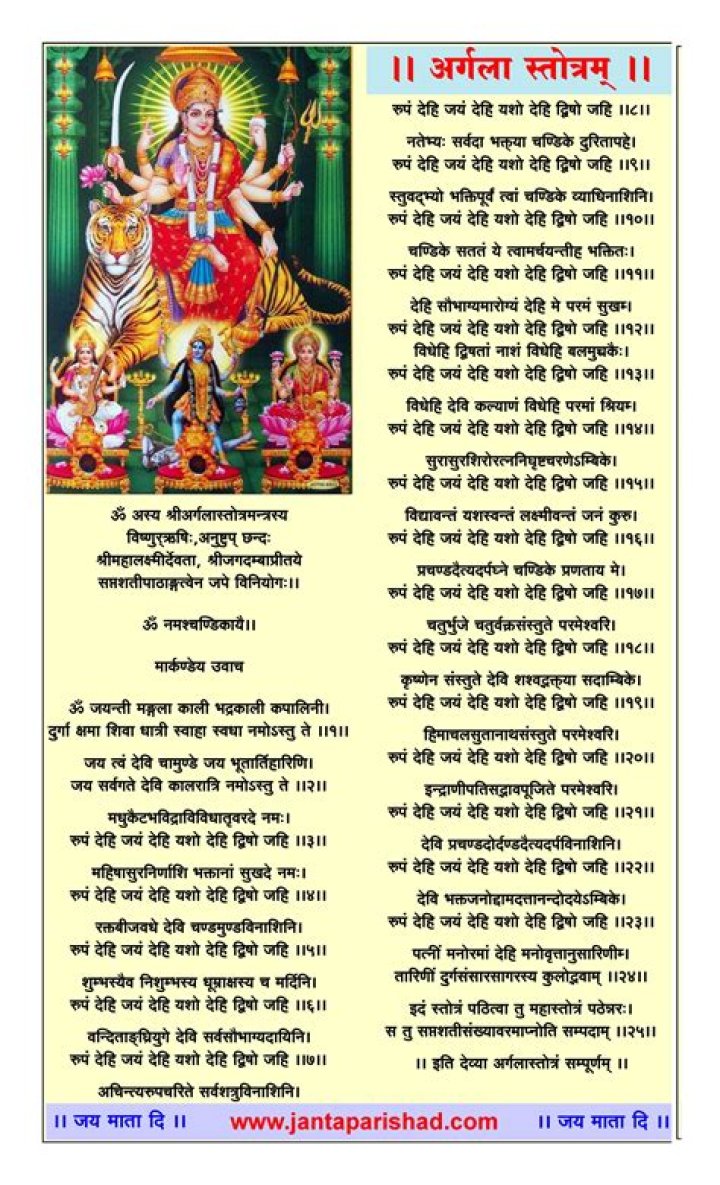 ।। अर्गला स्तोत्रम् ।।
ॐ अस्य श्रीअर्गलास्तोत्रमन्त्रस्य
विष्णुर्ऋषिः,अनुष्टुप् छन्दः
श्रीमहालक्ष्मीर्देवता, श्रीजगदम्बाप्रीतये
सप्तशतीपाठाङ्गत्वेन जपे विनियोगः।।
ॐ नमश्चण्डिकायै।।
मार्कण्डेय उवाच
ॐ जयन्ती मङ्गला काली भद्रकाली कपालिनी।
दुर्गा क्षमा शिवा धात्री स्वाहा स्वधा नमोऽस्तु ते ।।१।।
जय त्वं देवि चामुण्डे जय भूतार्तिहारिणि।
जय सर्वगते देवि कालरात्रि नमोऽस्तु ते ।।२।।
मधुकैटभविद्राविविधातृवरदे नमः।
रुपं देहि जयं देहि यशो देहि द्विषो जहि ।।३।।
महिषासुरनिर्णाशि भक्तानां सुखदे नमः।
रुपं देहि जयं देहि यशो देहि द्विषो जहि ।।४।।
रक्तबीजवधे देवि चण्डमुण्डविनाशिनि।
रुपं देहि जयं देहि यशो देहि द्विषो जहि ।।५।।
शुम्भस्यैव निशुम्भस्य धूम्राक्षस्य च मर्दिनि।
रुपं देहि जयं देहि यशो देहि द्विषो जहि ।।६।।
वन्दिताङ्घ्रियुगे देवि सर्वसौभाग्यदायिनि।
रुपं देहि जयं देहि यशो देहि द्विषो जहि ।।७।।
अचिन्त्यरुपचरिते सर्वशत्रुविनाशिनि।
रुपं देहि जयं देहि यशो देहि द्विषो जहि ।।८।।
नतेभ्यः सर्वदा भक्त्या चण्डिके दुरितापहे।
रुपं देहि जयं देहि यशो देहि द्विषो जहि ।।९।।
स्तुवद्भ्यो भक्तिपूर्वं त्वां चण्डिके व्याधिनाशिनि।
रुपं देहि जयं देहि यशो देहि द्विषो जहि ।।१०।।
चण्डिके सततं ये त्वामर्चयन्तीह भक्तितः।
रुपं देहि जयं देहि यशो देहि द्विषो जहि ।।११।।
देहि सौभाग्यमारोग्यं देहि मे परमं सुखम्।
रुपं देहि जयं देहि यशो देहि द्विषो जहि ।।१२।।
विधेहि द्विषतां नाशं विधेहि बलमुच्चकैः।
रुपं देहि जयं देहि यशो देहि द्विषो जहि ।।१३।।
विधेहि देवि कल्याणं विधेहि परमां श्रियम्।
रुपं देहि जयं देहि यशो देहि द्विषो जहि ।।१४।।
सुरासुरशिरोरत्ननिघृष्टचरणेऽम्बिके।
रुपं देहि जयं देहि यशो देहि द्विषो जहि ।।१५।।
विद्यावन्तं यशस्वन्तं लक्ष्मीवन्तं जनं कुरु।
रुपं देहि जयं देहि यशो देहि द्विषो जहि ।।१६।।
प्रचण्डदैत्यदर्पघ्ने चण्डिके प्रणताय मे।
रुपं देहि जयं देहि यशो देहि द्विषो जहि ।।१७।।
चतुर्भुजे चतुर्वक्त्रसंस्तुते परमेश्वरि।
रुपं देहि जयं देहि यशो देहि द्विषो जहि ।।१८।।
कृष्णेन संस्तुते देवि शश्वद्भक्त्या सदाम्बिके।
रुपं देहि जयं देहि यशो देहि द्विषो जहि ।।१९।।
हिमाचलसुतानाथसंस्तुते परमेश्वरि।
रुपं देहि जयं देहि यशो देहि द्विषो जहि ।।२०।।
इन्द्राणीपतिसद्भावपूजिते परमेश्वरि।
रुपं देहि जयं देहि यशो देहि द्विषो जहि ।।२१।।
देवि प्रचण्डदोर्दण्डदैत्यदर्पविनाशिनि।
रुपं देहि जयं देहि यशो देहि द्विषो जहि ।।२२।।
देवि भक्तजनोद्दामदत्तानन्दोदयेऽम्बिके।
रुपं देहि जयं देहि यशो देहि द्विषो जहि ।।२३।।
पत्नीं मनोरमां देहि मनोवृत्तानुसारिणीम्।
तारिणीं दुर्गसंसारसागरस्य कुलोद्भवाम् ।।२४।।
इदं स्तोत्रं पठित्वा तु महास्तोत्रं पठेन्नरः।
स तु सप्तशतीसंख्यावरमाप्नोति सम्पदाम् ।।२५।।
।। इति देव्या अर्गलास्तोत्रं सम्पूर्णम् ।।
।। जय माता दि ।। www.jantaparishad.com ।। जय माता दि ।।